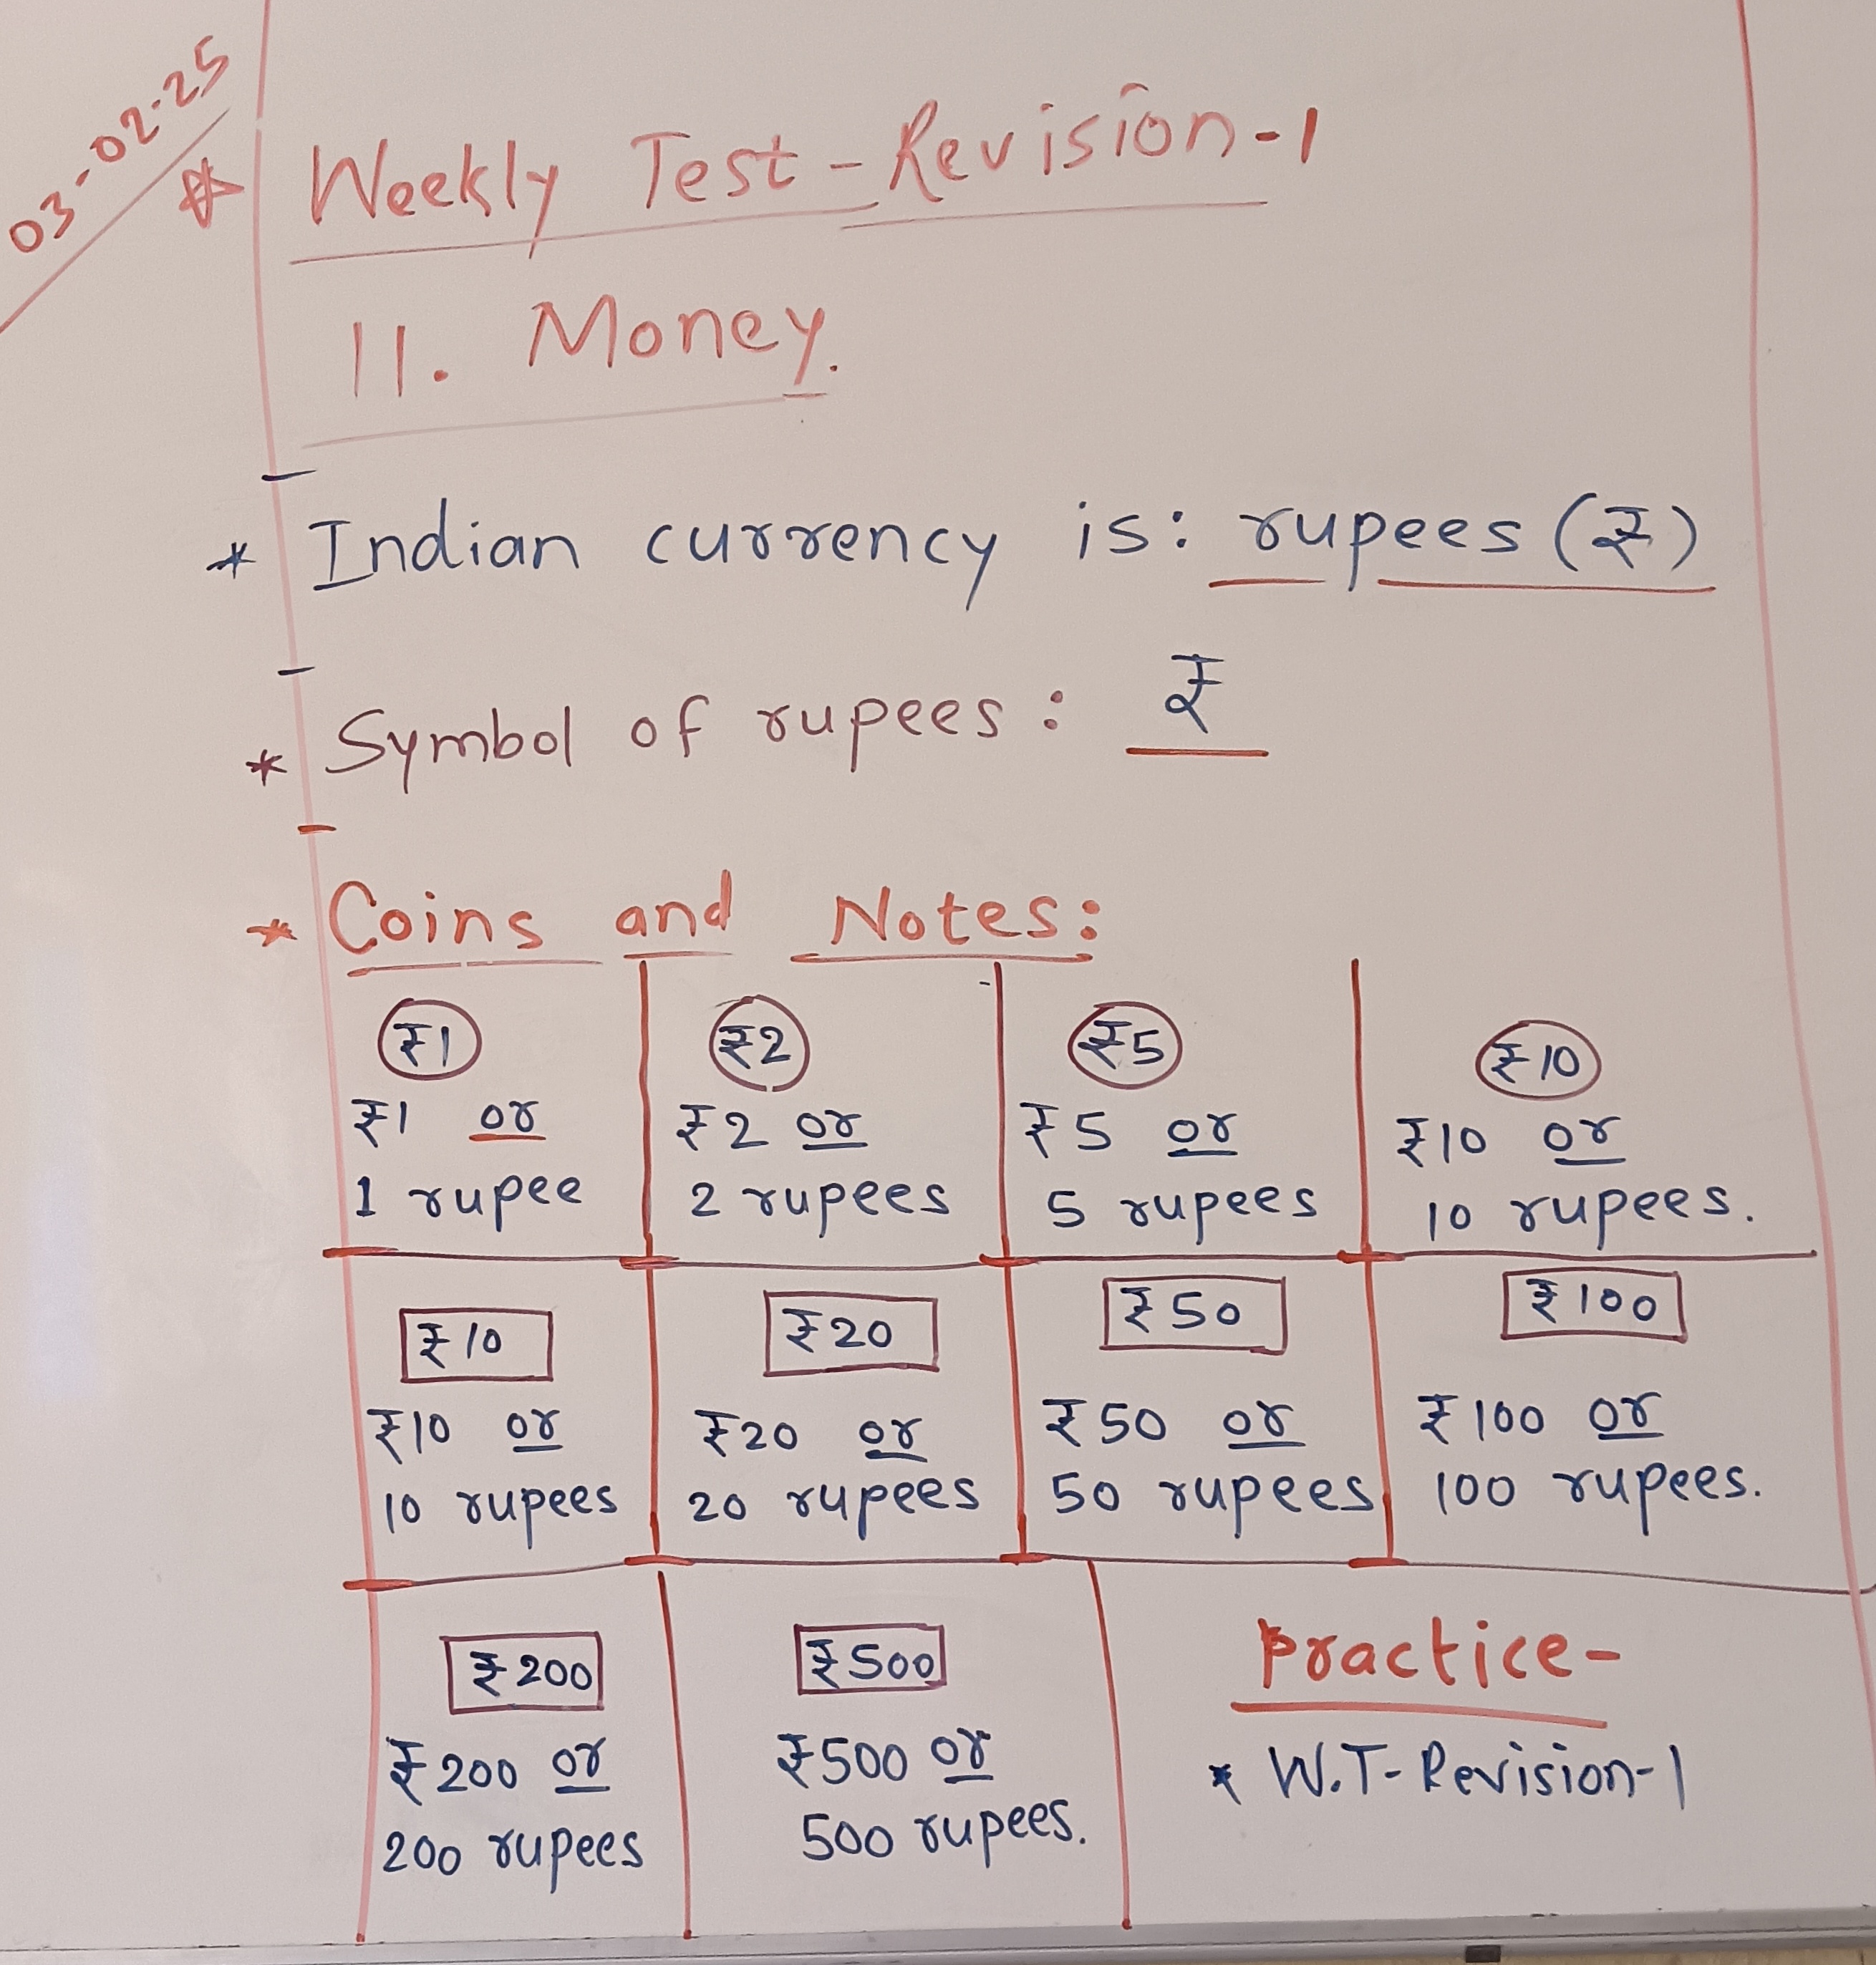 03-02-25
* Weekly Test-Revision-1
11. Money.
* Indian currency is: rupees (₹)
* Symbol of rupees: ₹
* Coins and Notes:
₹1
₹1 or
1 rupee
₹2
₹2 or
2 rupees
₹5
₹5 or
5 rupees
₹10
₹10 or
10 rupees.
₹10
₹10 or
10 rupees
₹20
₹20 or
20 rupees
₹50
₹50 or
50 rupees
₹100
₹100 or
100 rupees.
₹200
₹200 or
200 rupees
₹500
₹500 or
500 rupees.
Practice-
* W.T-Revision-1